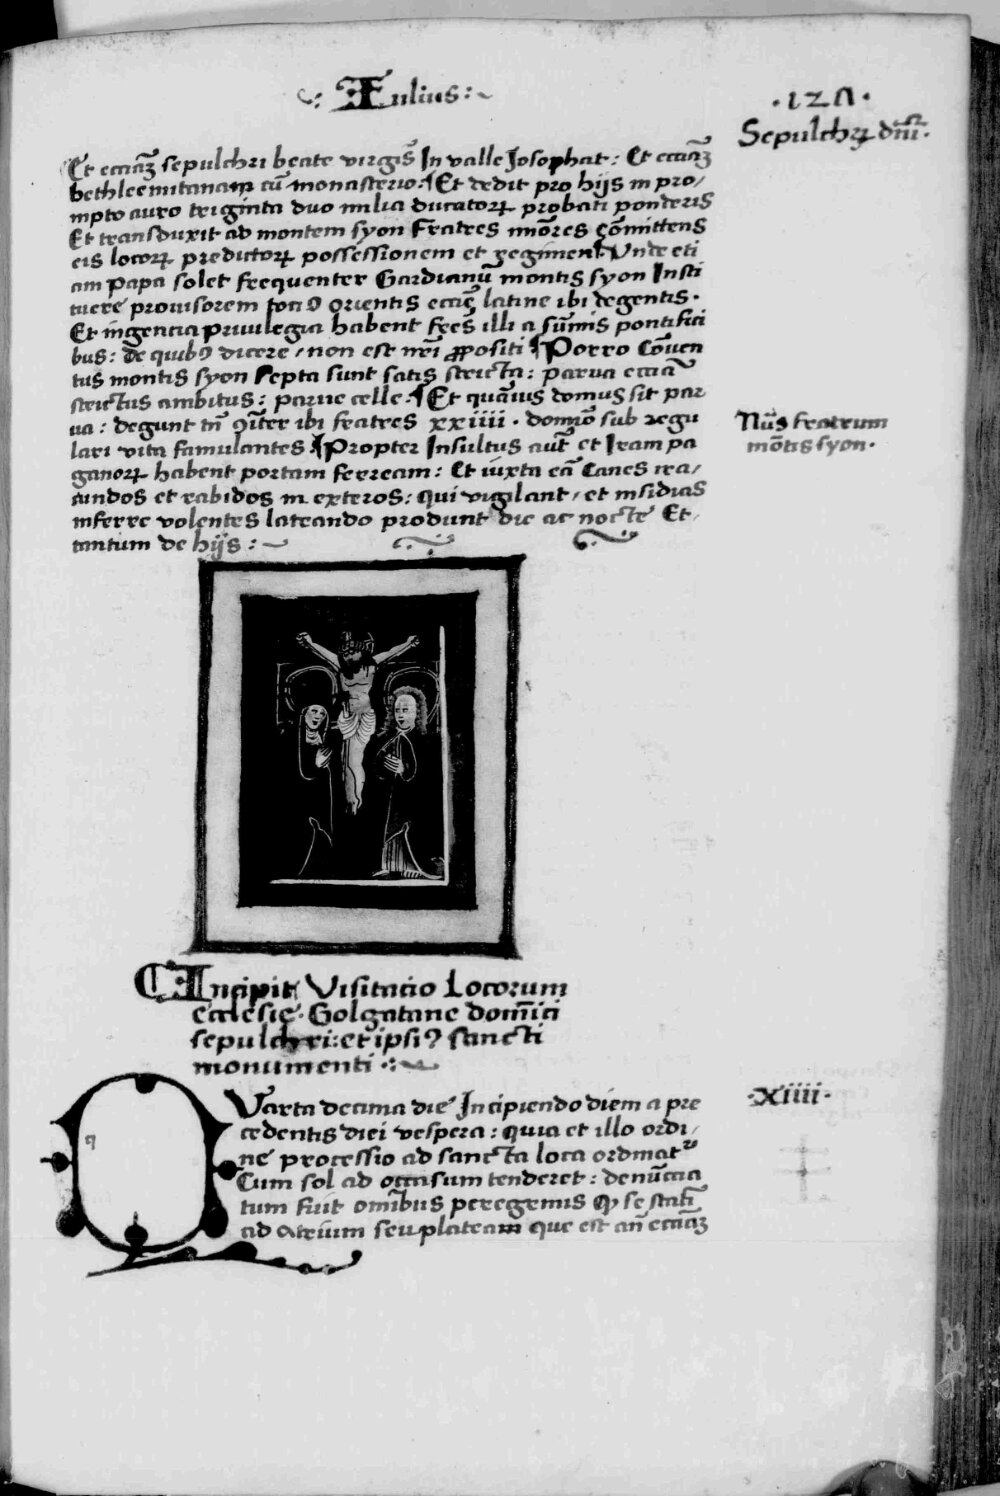 Iulius:
.127.
Sepulchꝝ dñi.
Et ecciāꝫ sepulchri beate virgīs In valle Josophat: Et ecciāꝫ
bethleemitanam cū monasterio: ¶ Et dedit pro hijs in pro/
mpto auro triginta duo milia ducatorꝝ probati ponderis
Et transduxit ad montem syon Fratres mīores cōmittens
eis locorꝝ predictorꝝ possessionem et regimen ¶ Unde eti
am Papa solet frequenter Gardianū montis syon Insti
tuere prouisorem totiꝰ orientis eccīę latine ibi degentis.
Et ingentia priuilegia habent frēs illi a sūmis pontifici
bus: de quibꝰ dicere / non est nrī ꝓpositi ¶ Porro Cōuen
tus montis syon septa sunt satis stricta: parua ecciā
strictus ambitus: parue celle: ¶ Et quāuis domus sit par
ua: degunt tñ ꝯiter ibi fratres xxiiii. domīo sub regu
lari vita famulantes ¶ Propter Insultus aūt et Iram pa
ganorꝝ habent portam ferream: Et iuxta eā Canes ira/
cundos et rabidos in exteros: Qui vigilant / et insidias
inferre volentes latrando produnt die ac nocte Et
tantum de hijs:
Nūs fratrum
mōtis syon.
Incipit Visitacio Locorum
ecclesie Golgatane domīci
sepulchri: et ipsiꝰ sancti
monumenti.:
.Xiiii.
QVarta decima die Incipiendo diem a pre
cedentis diei vespera: quia et illo ordi/
ne processio ad sancta loca ordinatʳ
Cum sol ad occasum tenderet: denūcia
tum fuit omībus peregrinis ꝙ se statī
ad atrium seu plateam que est añ ecciāꝫ